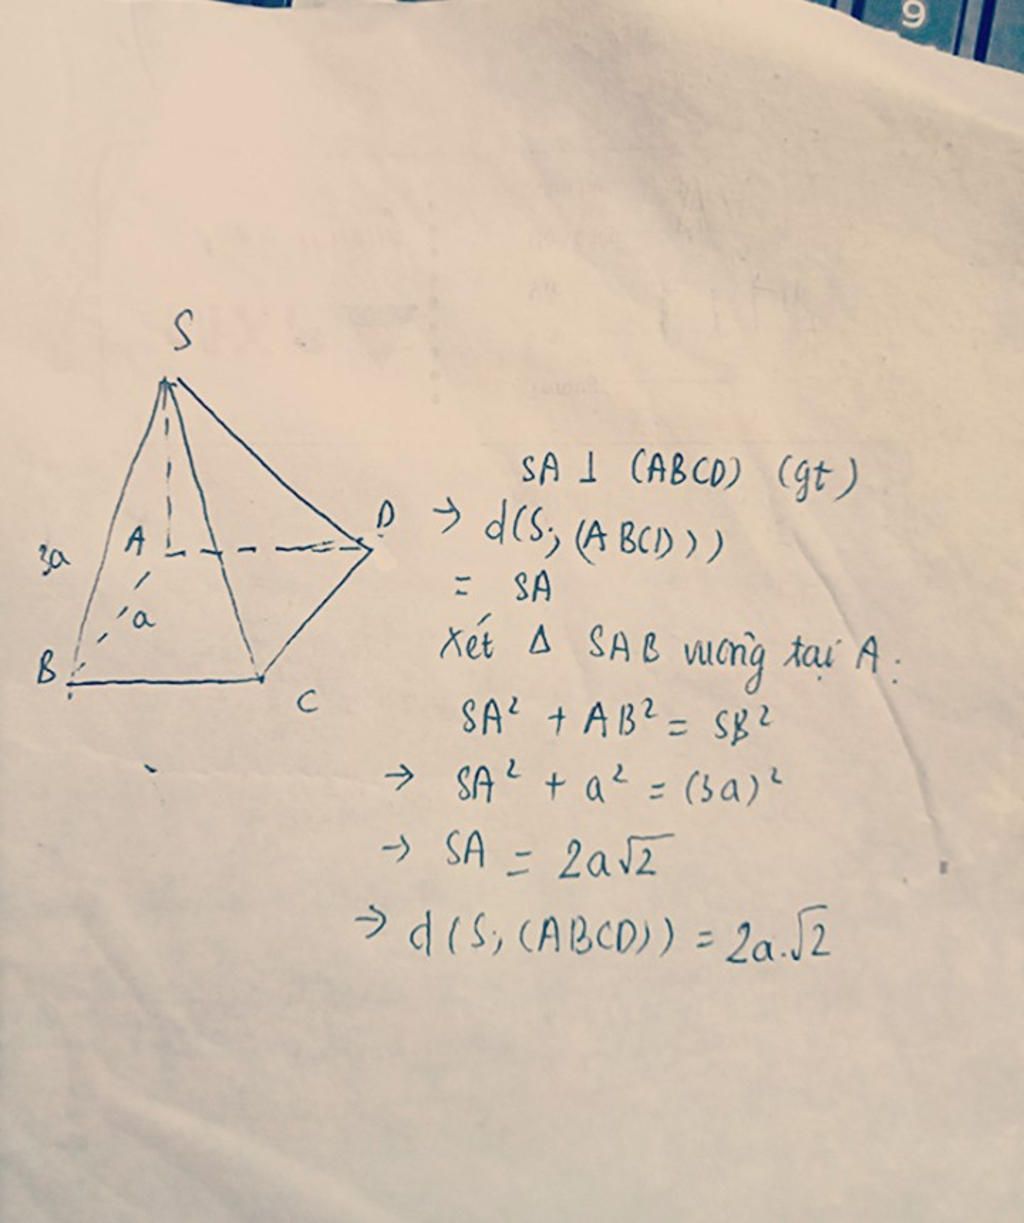 9
S
SA ⊥ (ABCD) (gt)
D
→ d(S; (ABCD))
A
3a
= SA
a
Xét Δ SAB vuông tại A:
B
C
SA² + AB² = SB²
→ SA² + a² = (3a)²
→ SA = 2a√2
→ d(S; (ABCD)) = 2a.√2